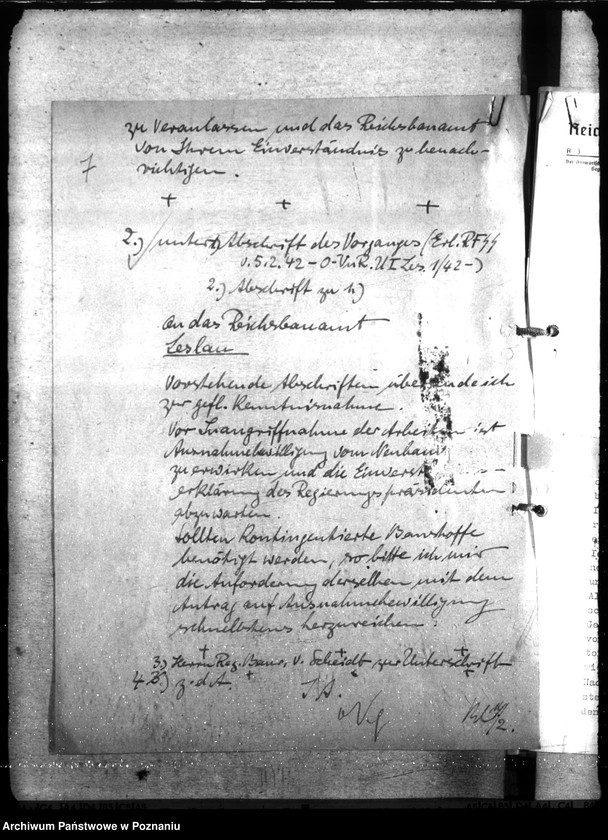 7
zu veranlassen und das Reichsbauamt
von Ihrem Einverständnis zu benach-
richtigen.
+ + +
2.) unter Abschrift des Vorganges (Erl. RFSS
v. 5.2.42 – O-VuR. U I Les. 1/42 –)
2.) Abschrift zu 1)
an das Reichsbauamt
Leslau
Vorstehende Abschriften über ende ich
zur gefl. Kenntnisnahme.
Vor Inangriffnahme der Arbeiten ist
Ausnahmebewilligung vom Neubau
zu erwirken und die Einverst
erklärung des Regierungspräsidenten
abzuwarten.
Sollten kontingentierte Baustoffe
benötigt werden, so bitte ich mir
die Anforderung derselben mit dem
Antrag auf Ausnahmebewilligung
schnellstens herzureichen.
3.) Herrn Reg. Baur. v. Scheidt zur Unterschrift
4.) z. d. A.
I.A.
Reic
R
Archiwum Państwowe w Poznaniu